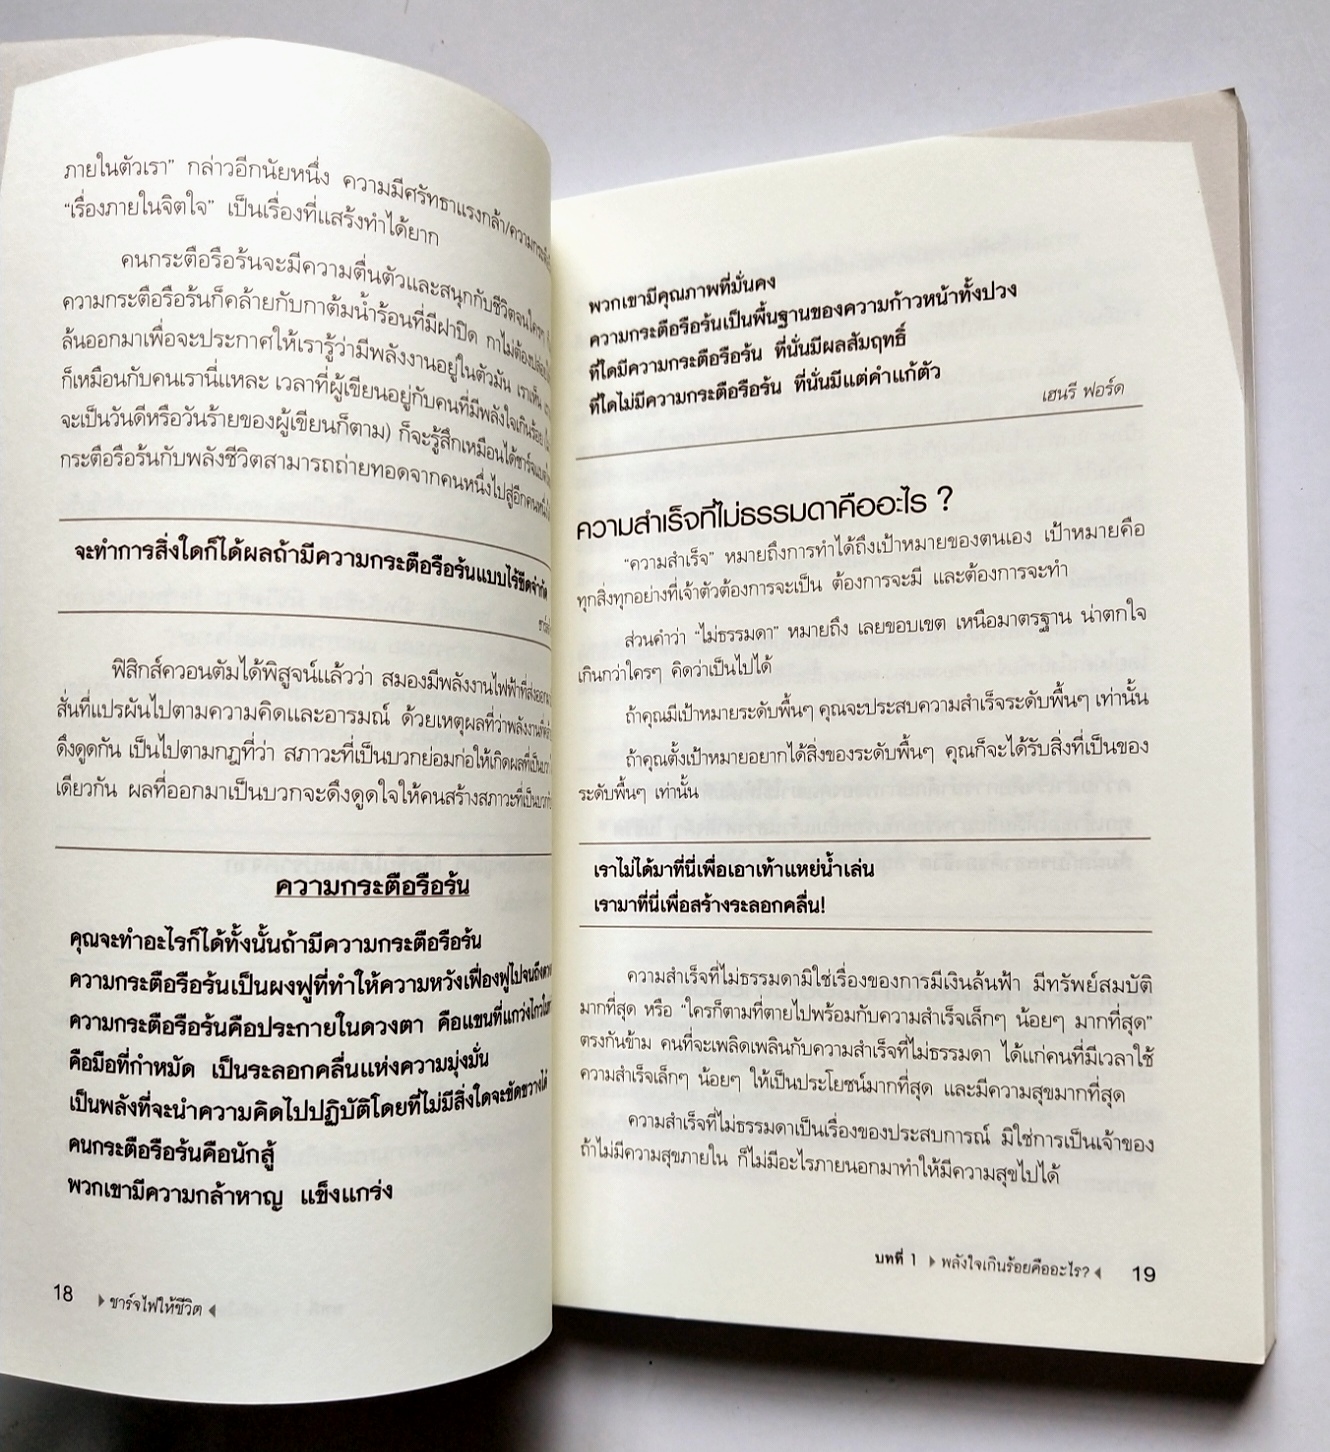 ภายในตัวเรา” กล่าวอีกนัยหนึ่ง ความมีศรัทธาแรงกล้า/
“เรื่องภายในจิตใจ” เป็นเรื่องที่แสร้งทำได้ยาก
คนกระตือรือร้นจะมีความตื่นตัวและสนุกกับชีวิตจนใครๆ
ความกระตือรือร้นก็คล้ายกับกาต้มน้ำร้อนที่มีฝาปิด กาไม่ต้อง
ล้นออกมาเพื่อจะประกาศให้เรารู้ว่ามีพลังงานอยู่ในตัวมัน เราเห็น
ก็เหมือนกับคนเรานี่แหละ เวลาที่ผู้เขียนอยู่กับคนที่มีพลังใจเกินร้อย
จะเป็นวันดีหรือวันร้ายของผู้เขียนก็ตาม) ก็จะรู้สึกเหมือนได้ชาร์จ
กระตือรือร้นกับพลังชีวิตสามารถถ่ายทอดจากคนหนึ่งไปสู่อีกคนหนึ่ง
จะทำการสิ่งใดก็ได้ผลถ้ามีความกระตือรือร้นแบบไร้ขีดจำกัด
ฟิสิกส์ควอนตัมได้พิสูจน์แล้วว่า สมองมีพลังงานไฟฟ้าที่ส่งออก
สั่นที่แปรผันไปตามความคิดและอารมณ์ ด้วยเหตุผลที่ว่าพลังงาน
ดึงดูดกัน เป็นไปตามกฎที่ว่า สภาวะที่เป็นบวกย่อมก่อให้เกิดผลที่เป็น
เดียวกัน ผลที่ออกมาเป็นบวกจะดึงดูดใจให้คนสร้างสภาวะที่เป็นบวก
ความกระตือรือร้น
คุณจะทำอะไรก็ได้ทั้งนั้นถ้ามีความกระตือรือร้น
ความกระตือรือร้นเป็นผงฟูที่ทำให้ความหวังเฟื่องฟูไปจนถึง
ความกระตือรือร้นคือประกายในดวงตา คือแขนที่แกว่งไกว
คือมือที่กำหมัด เป็นระลอกคลื่นแห่งความมุ่งมั่น
เป็นพลังที่จะนำความคิดไปปฏิบัติโดยที่ไม่มีสิ่งใดจะขัดขวางได้
คนกระตือรือร้นคือนักสู้
พวกเขามีความกล้าหาญ แข็งแกร่ง
18 ชาร์จไฟให้ชีวิต
พวกเขามีคุณภาพที่มั่นคง
ความกระตือรือร้นเป็นพื้นฐานของความก้าวหน้าทั้งปวง
ที่ใดมีความกระตือรือร้น ที่นั่นมีผลสัมฤทธิ์
ที่ใดไม่มีความกระตือรือร้น ที่นั่นมีแต่คำแก้ตัว
เฮนรี ฟอร์ด
ความสำเร็จที่ไม่ธรรมดาคืออะไร ?
“ความสำเร็จ” หมายถึงการทำได้ถึงเป้าหมายของตนเอง เป้าหมายคือ
ทุกสิ่งทุกอย่างที่เจ้าตัวต้องการจะเป็น ต้องการจะมี และต้องการจะทำ
ส่วนคำว่า “ไม่ธรรมดา” หมายถึง เลยขอบเขต เหนือมาตรฐาน น่าตกใจ
เกินกว่าใครๆ คิดว่าเป็นไปได้
ถ้าคุณมีเป้าหมายระดับพื้นๆ คุณจะประสบความสำเร็จระดับพื้นๆ เท่านั้น
ถ้าคุณตั้งเป้าหมายอยากได้สิ่งของระดับพื้นๆ คุณก็จะได้รับสิ่งที่เป็นของ
ระดับพื้นๆ เท่านั้น
เราไม่ได้มาที่นี่เพื่อเอาเท้าแหย่น้ำเล่น
เรามาที่นี่เพื่อสร้างระลอกคลื่น!
ความสำเร็จที่ไม่ธรรมดามิใช่เรื่องของการมีเงินล้นฟ้า มีทรัพย์สมบัติ
มากที่สุด หรือ “ใครก็ตามที่ตายไปพร้อมกับความสำเร็จเล็กๆ น้อยๆ มากที่สุด”
ตรงกันข้าม คนที่จะเพลิดเพลินกับความสำเร็จที่ไม่ธรรมดา ได้แก่คนที่มีเวลาใช้
ความสำเร็จเล็กๆ น้อยๆ ให้เป็นประโยชน์มากที่สุด และมีความสุขมากที่สุด
ความสำเร็จที่ไม่ธรรมดาเป็นเรื่องของประสบการณ์ มิใช่การเป็นเจ้าของ
ถ้าไม่มีความสุขภายใน ก็ไม่มีอะไรภายนอกมาทำให้มีความสุขไปได้
บทที่ 1 พลังใจเกินร้อยคืออะไร? 19